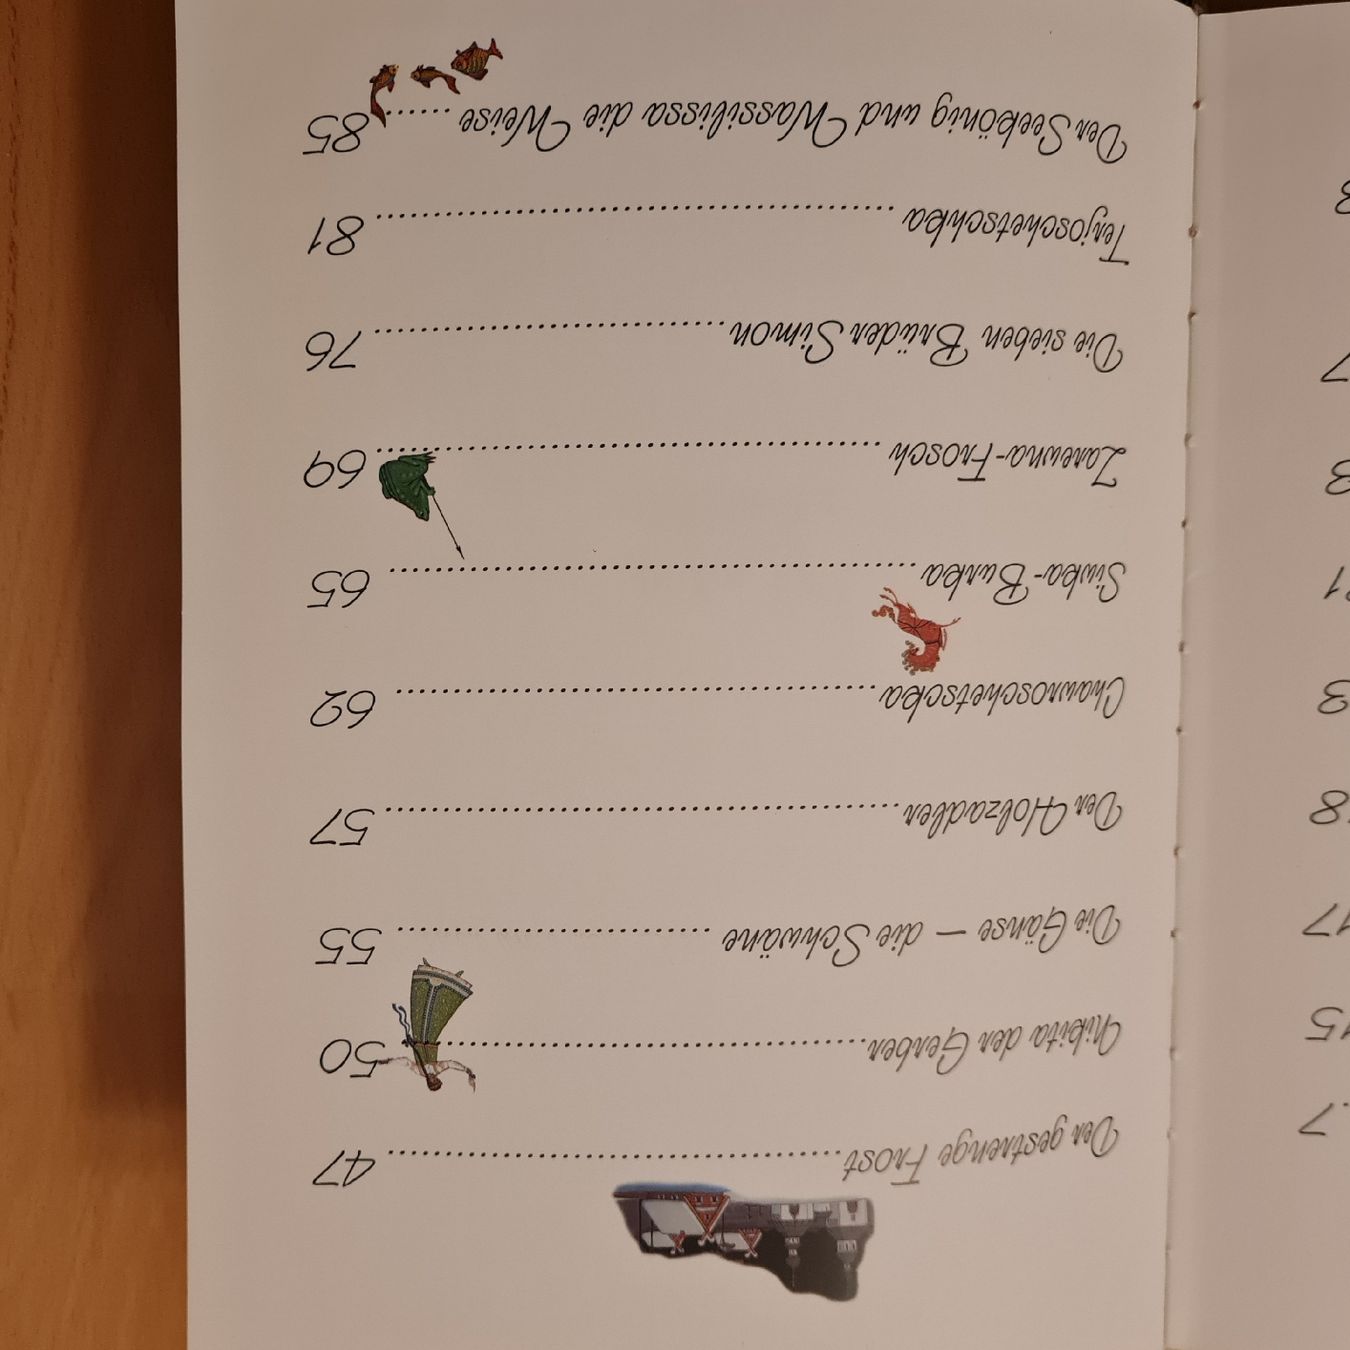 Der gestrenge Frost 47
Nikita der Gerber 50
Die Gänse – die Schwäne 55
Der Holzadler 57
Chawroschetscka 62
Siwka-Burka 65
Zarewna-Frosch 69
Die sieben Brüder Simon 76
Terjoschetschka 81
Der Seekönig und Wassilissa die Weise 85